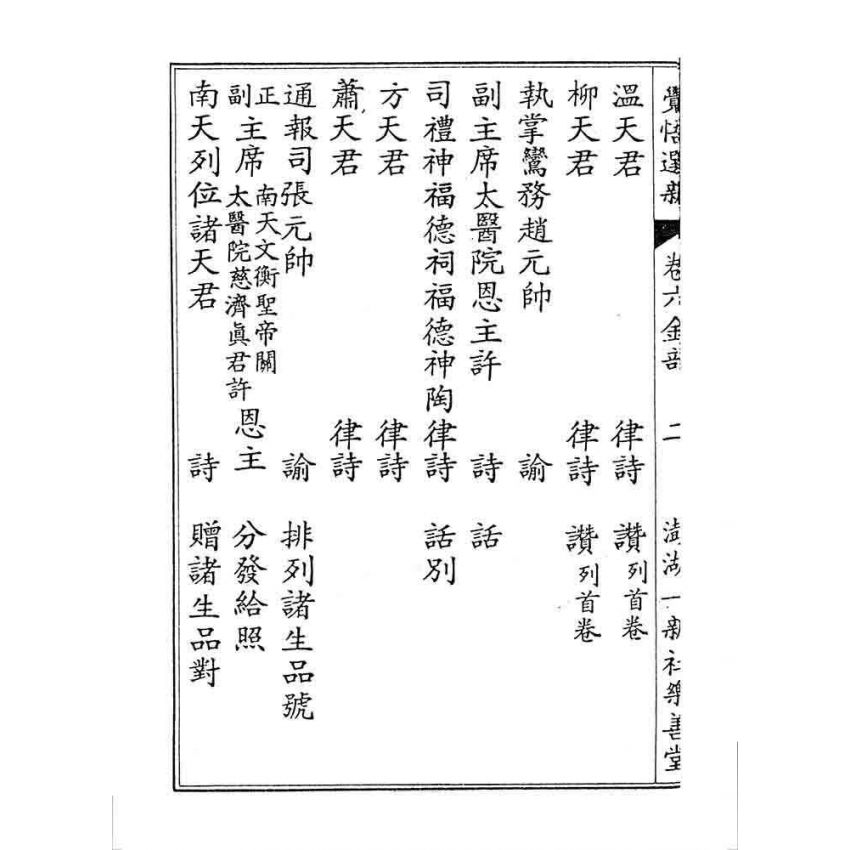 覺悟選新 卷六金部 二 澎湖一新社樂善堂
溫天君 律詩 讚 列首卷
柳天君 律詩 讚 列首卷
執掌鸞務趙元帥 諭
副主席太醫院恩主許 詩 話
司禮神福德祠福德神陶 律詩 話別
方天君 律詩
蕭天君 律詩
通報司張元帥 諭 排列諸生品號
正副主席 南天文衡聖帝關 太醫院慈濟眞君許 恩主 分發給照
南天列位諸天君 詩 贈諸生品對